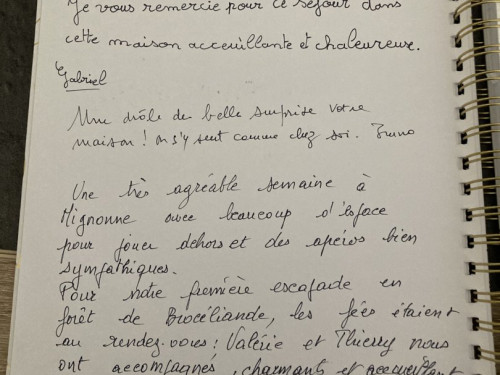 Je vous remercie pour ce séjour dans
cette maison acceuillante et chaleureuse.
Gabriel
Une drôle de belle surprise votre
maison ! On s'y sent comme chez soi. Bruno
Une très agréable semaine à
Mignonne avec beaucoup d'espace
pour jouer dehors et des apéros bien
sympathiques.
Pour notre première escapade en
forêt de Brocéliande, les fées étaient
au rendez-vous : Valérie et Thierry nous
ont accompagnés, charmants et accueillant